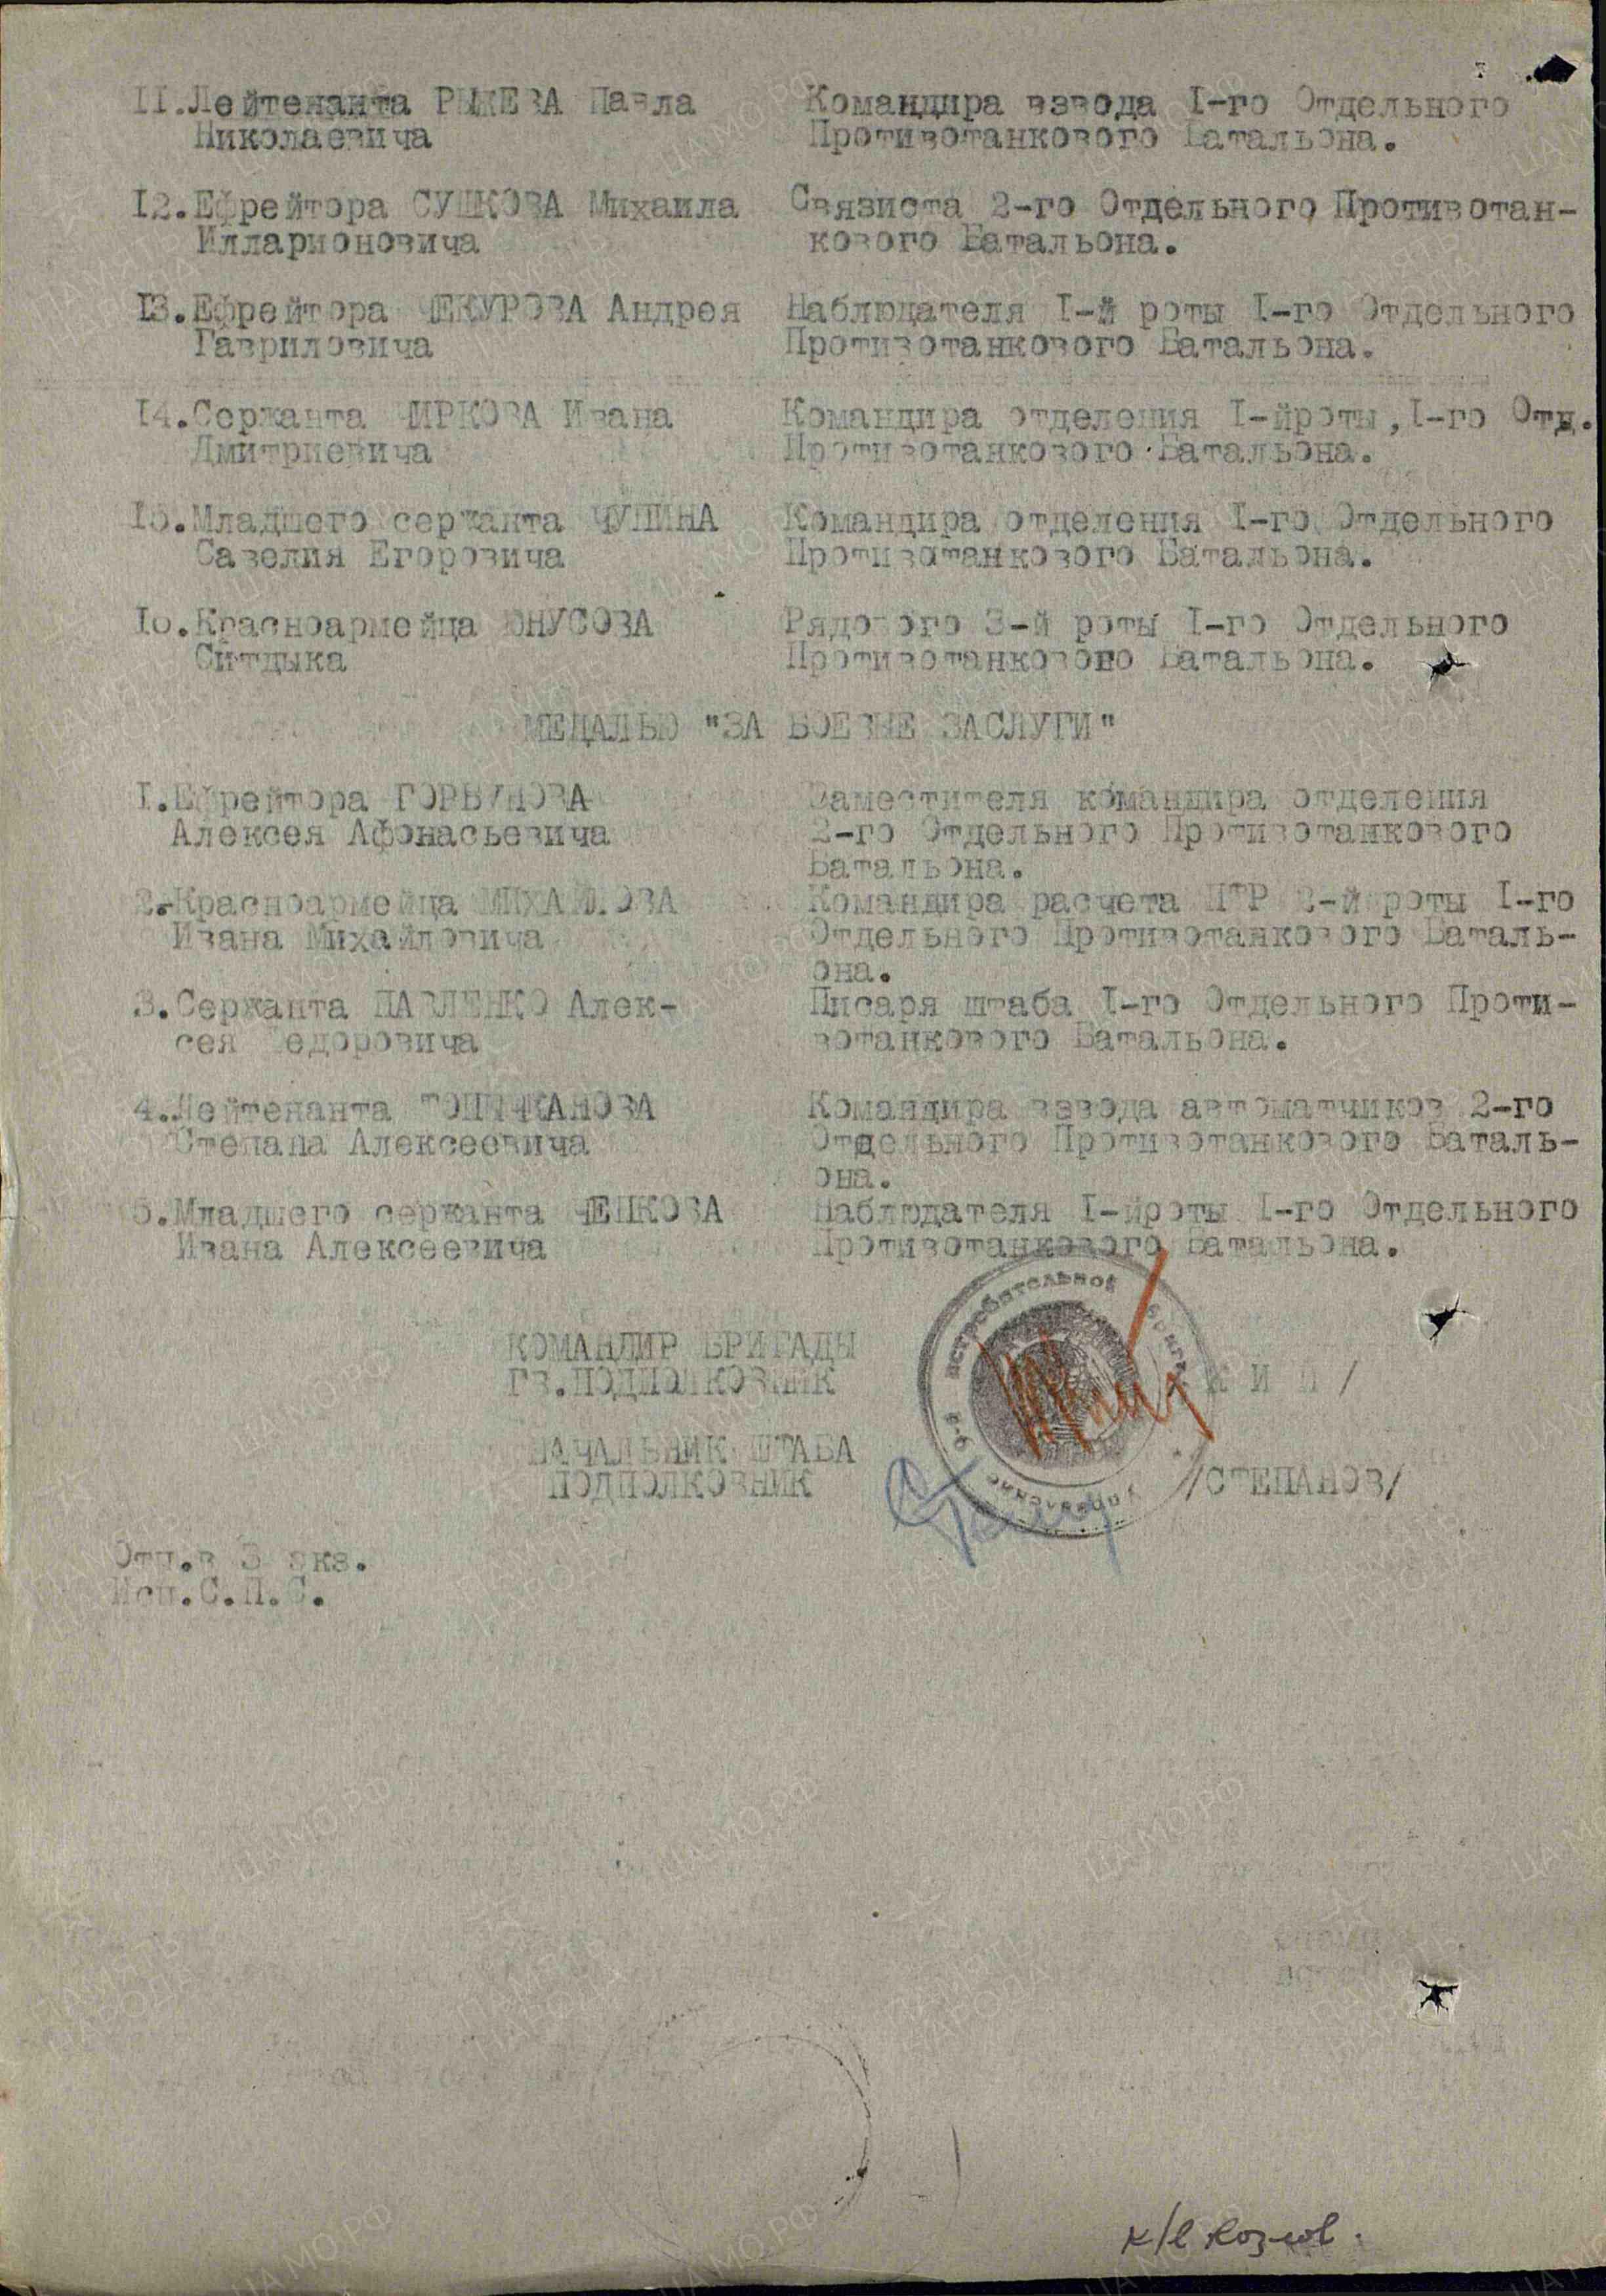 11.Лейтенанта РЫЖЕВА Павла Командира взвода I-го Отдельного
Николаевича Противотанкового Батальона.
12.Ефрейтора СУШКОВА Михаила Связиста 2-го Отдельного Противотан-
Илларионовича кового Батальона.
13.Ефрейтора ЧЕКУРОВА Андрея Наблюдателя I-й роты I-го Отдельного
Гавриловича Противотанкового Батальона.
14.Сержанта ЧИРКОВА Ивана Командира отделения I-йроты,I-го Отд.
Дмитриевича Противотанкового Батальона.
15.Младшего сержанта ЧУПИНА Командира отделения I-го Отдельного
Савелия Егоровича Противотанкового Батальона.
16.Красноармейца ЮНУСОВА Рядового 3-й роты I-го Отдельного
Ситдыка Противотанкового Батальона.
МЕДАЛЬЮ "ЗА БОЕВЫЕ ЗАСЛУГИ"
I.Ефрейтора ГОРБУНОВА Заместителя командира отделения
Алексея Афонасьевича 2-го Отдельного Противотанкового
Батальона.
2.Красноармейца МИХАЙЛОВА Командира расчета ПТР 2-й роты I-го
Ивана Михайловича Отдельного Противотанкового Баталь-
она.
3.Сержанта ПАВЛЕНКО Алек- Писаря штаба I-го Отдельного Проти-
сея Федоровича вотанкового Батальона.
4.Лейтенанта Командира взвода автоматчиков 2-го
Степана Алексеевича Отдельного Противотанкового Баталь-
она.
5.Младшего сержанта ЧЕПКОВА Наблюдателя I-йроты I-го Отдельного
Ивана Алексеевича Противотанкового Батальона.
истребительное
КОМАНДИР БРИГАДЫ
ГВ.ПОДПОЛКОВНИК К И Й /
НАЧАЛЬНИК ШТАБА
ПОДПОЛКОВНИК /СТЕПАНОВ/
Отп.в 3 экз.
Исп.С.П.С.
к/л Козлов.